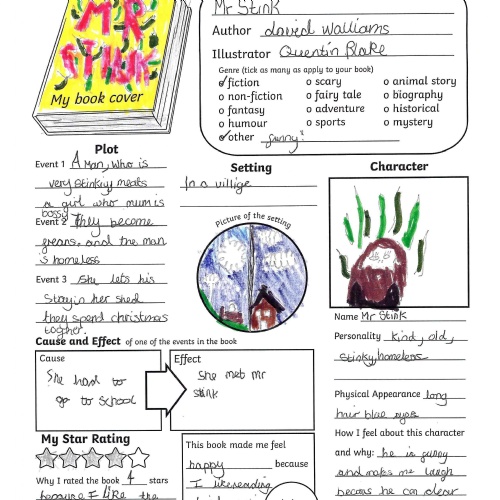 MR
STINK
My book cover
Mr Stink
Author david walliams
Illustrator Quentin Blake
Genre (tick as many as apply to your book)
fiction
scary
animal story
non-fiction
fairy tale
biography
fantasy
adventure
historical
humour
sports
mystery
other funny?
Plot
Event 1 A man, who is
very stinkiy meats
a girl who mum is
bossy
Event 2 They become
and the man
is homeless
Event 3 She lets his
stay in her shed
they spend christmas
Setting
In a villige
Picture of the setting
Character
Name Mr Stink
Personality kind, old,
stinky, homeless
Physical Appearance long
hair blue eyes
How I feel about this character
and why: he is funny
and makes me laugh
he can clear
Cause and Effect of one of the events in the book
Cause
She had to
go to school
Effect
she met mr
stink
My Star Rating
Why I rated the book 4 stars
because I like the
This book made me feel
happy because
I like reading